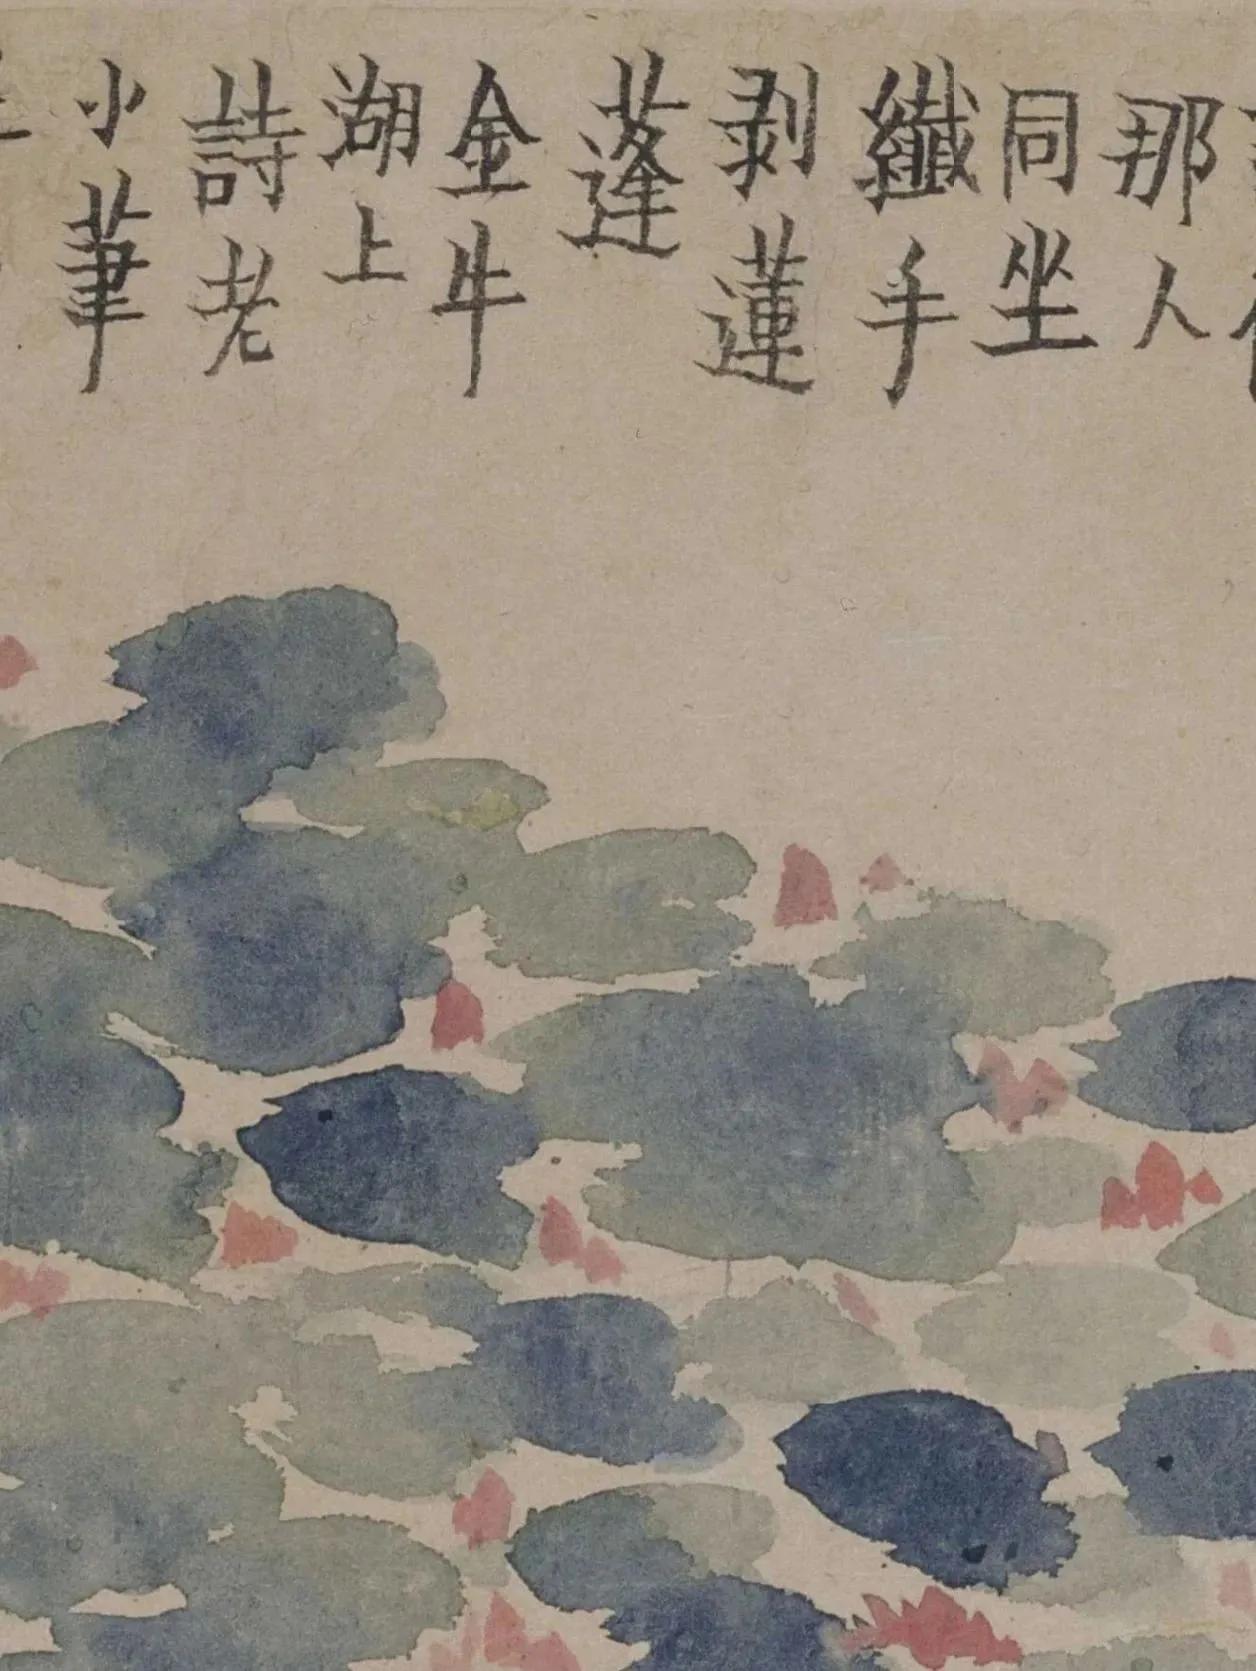 那人
同坐
纖手
剥蓮
蓬
金牛
湖上
詩老
小筆